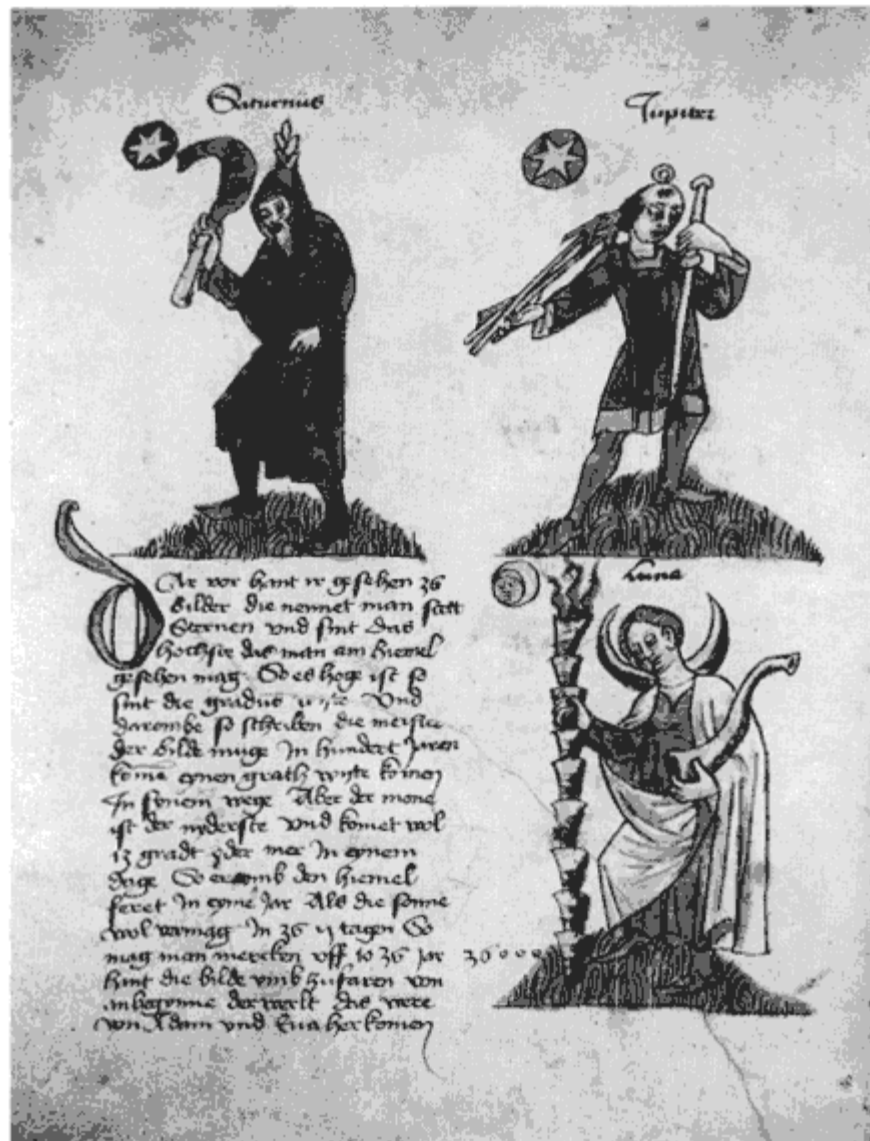 Saturnus
Jupiter
Dar vor hant ir gesehen 36
bilder die nennet man
Sternen vnd sint das
hochste das man am hiemel
gesehen mag So es hoge ist so
sint die gradus Vnd
darombe so schriben die meister
der bilde muge In hundert Jaren
kome eynen grath wyte komen
In synem wege Aber der mone
ist der nyderste vnd komet wol
13 gradt oder mer In eynem
dage So er omb den hiemel
feret In eyme Jar Als die sonne
wol vermag In tagen So
mag man mercken vff 36 jar 36000
hint die bilde vmb zu faren von
anbegynne der welt das were
von Adam vnd Eua her komen
Luna